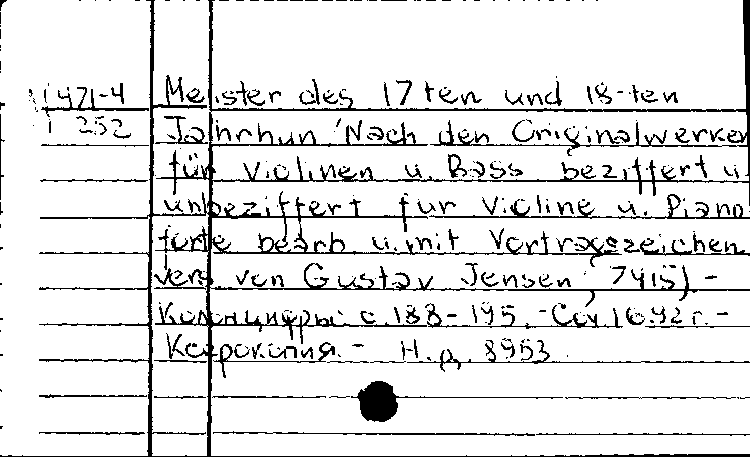 И 471-4 Meister des 17 ten und 18-ten
I 252 Jahrhun. Nach den Originalwerken
für Violinen u. Bass beziffert u.
unbeziffert für Violine u. Piano
forte bearb. u. mit Vortragszeichen
vers. von Gustav Jensen, 7415). -
Колонцифры: с. 188-195. - Соч. 1692 г. -
Ксерокопия. - Н. д. 8953